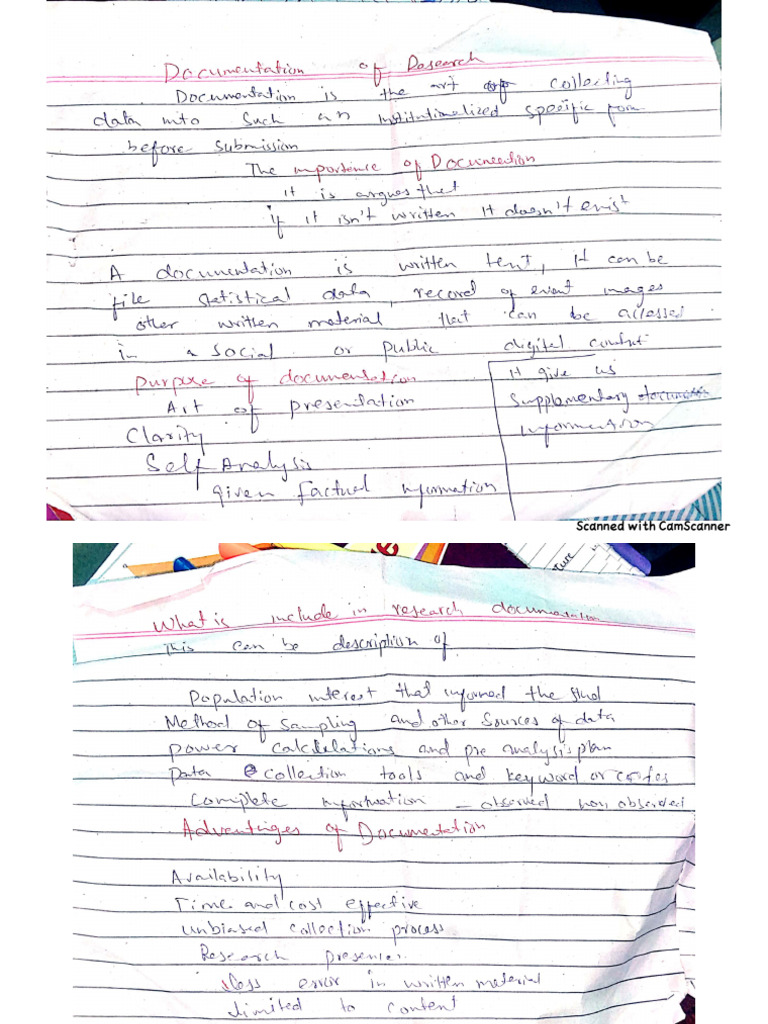 Documentation of Research
Documentation is the art of collecting
data into such an institutionalized specific form
before submission
The importence of Documeetion
It is argues that
if it isn't written it doesn't exist
A documentation is written text, It can be
file statistical data, record of event images
other written material that can be accessed
in a social or public digital content
purpose of documentation
Art of presentation
Clarity
Self Analysis
given factual information
It give us
supplementary
information
Scanned with CamScanner
What is include in research documentation
This can be description of
Population interest that informed the stud
Method of sampling and other sources of data
power calculations and pre analysis plan
Data collection tools and keyword or codes
Complete information – observed non observed
Advantages of Documentation
Availability
Time and cost effective
unbiased collection process
Research presence
Less error in written material
limited to content